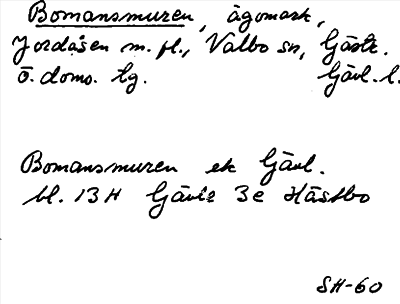 Bomansmuren, ägomark,
Jordåsen m. fl., Valbo sn, Gästr.
Ö. doms. tg. Gävl. l.
Bomansmuren ek Gävl.
bl. 13H Gävle 3e Hästbo
SH-60